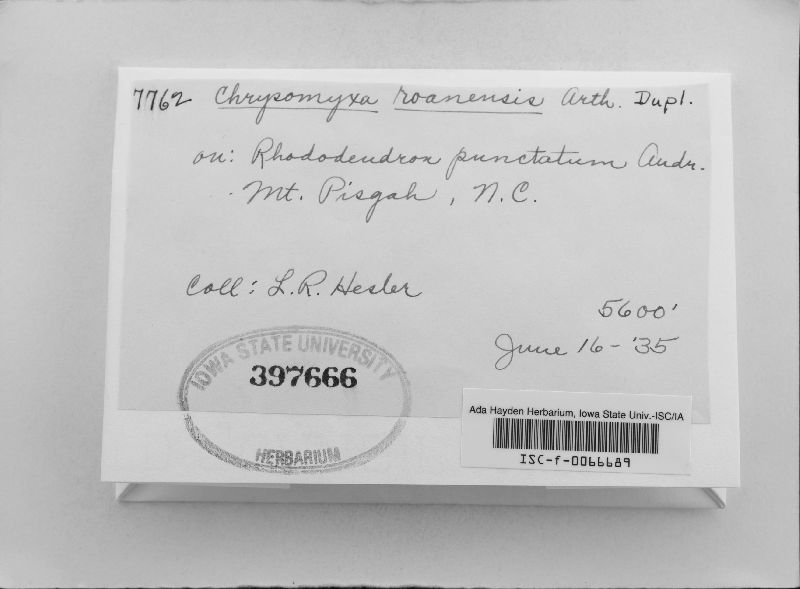 7762 Chrysomyxa roanensis Arth. Dupl.
on: Rhododendron punctatum Andr.
Mt. Pisgah, N.C.
Coll: L.R. Hesler
5600'
June 16-'35
IOWA STATE UNIVERSITY
397666
HERBARIUM
Ada Hayden Herbarium, Iowa State Univ.-ISC/IA
ISC-f-0066689